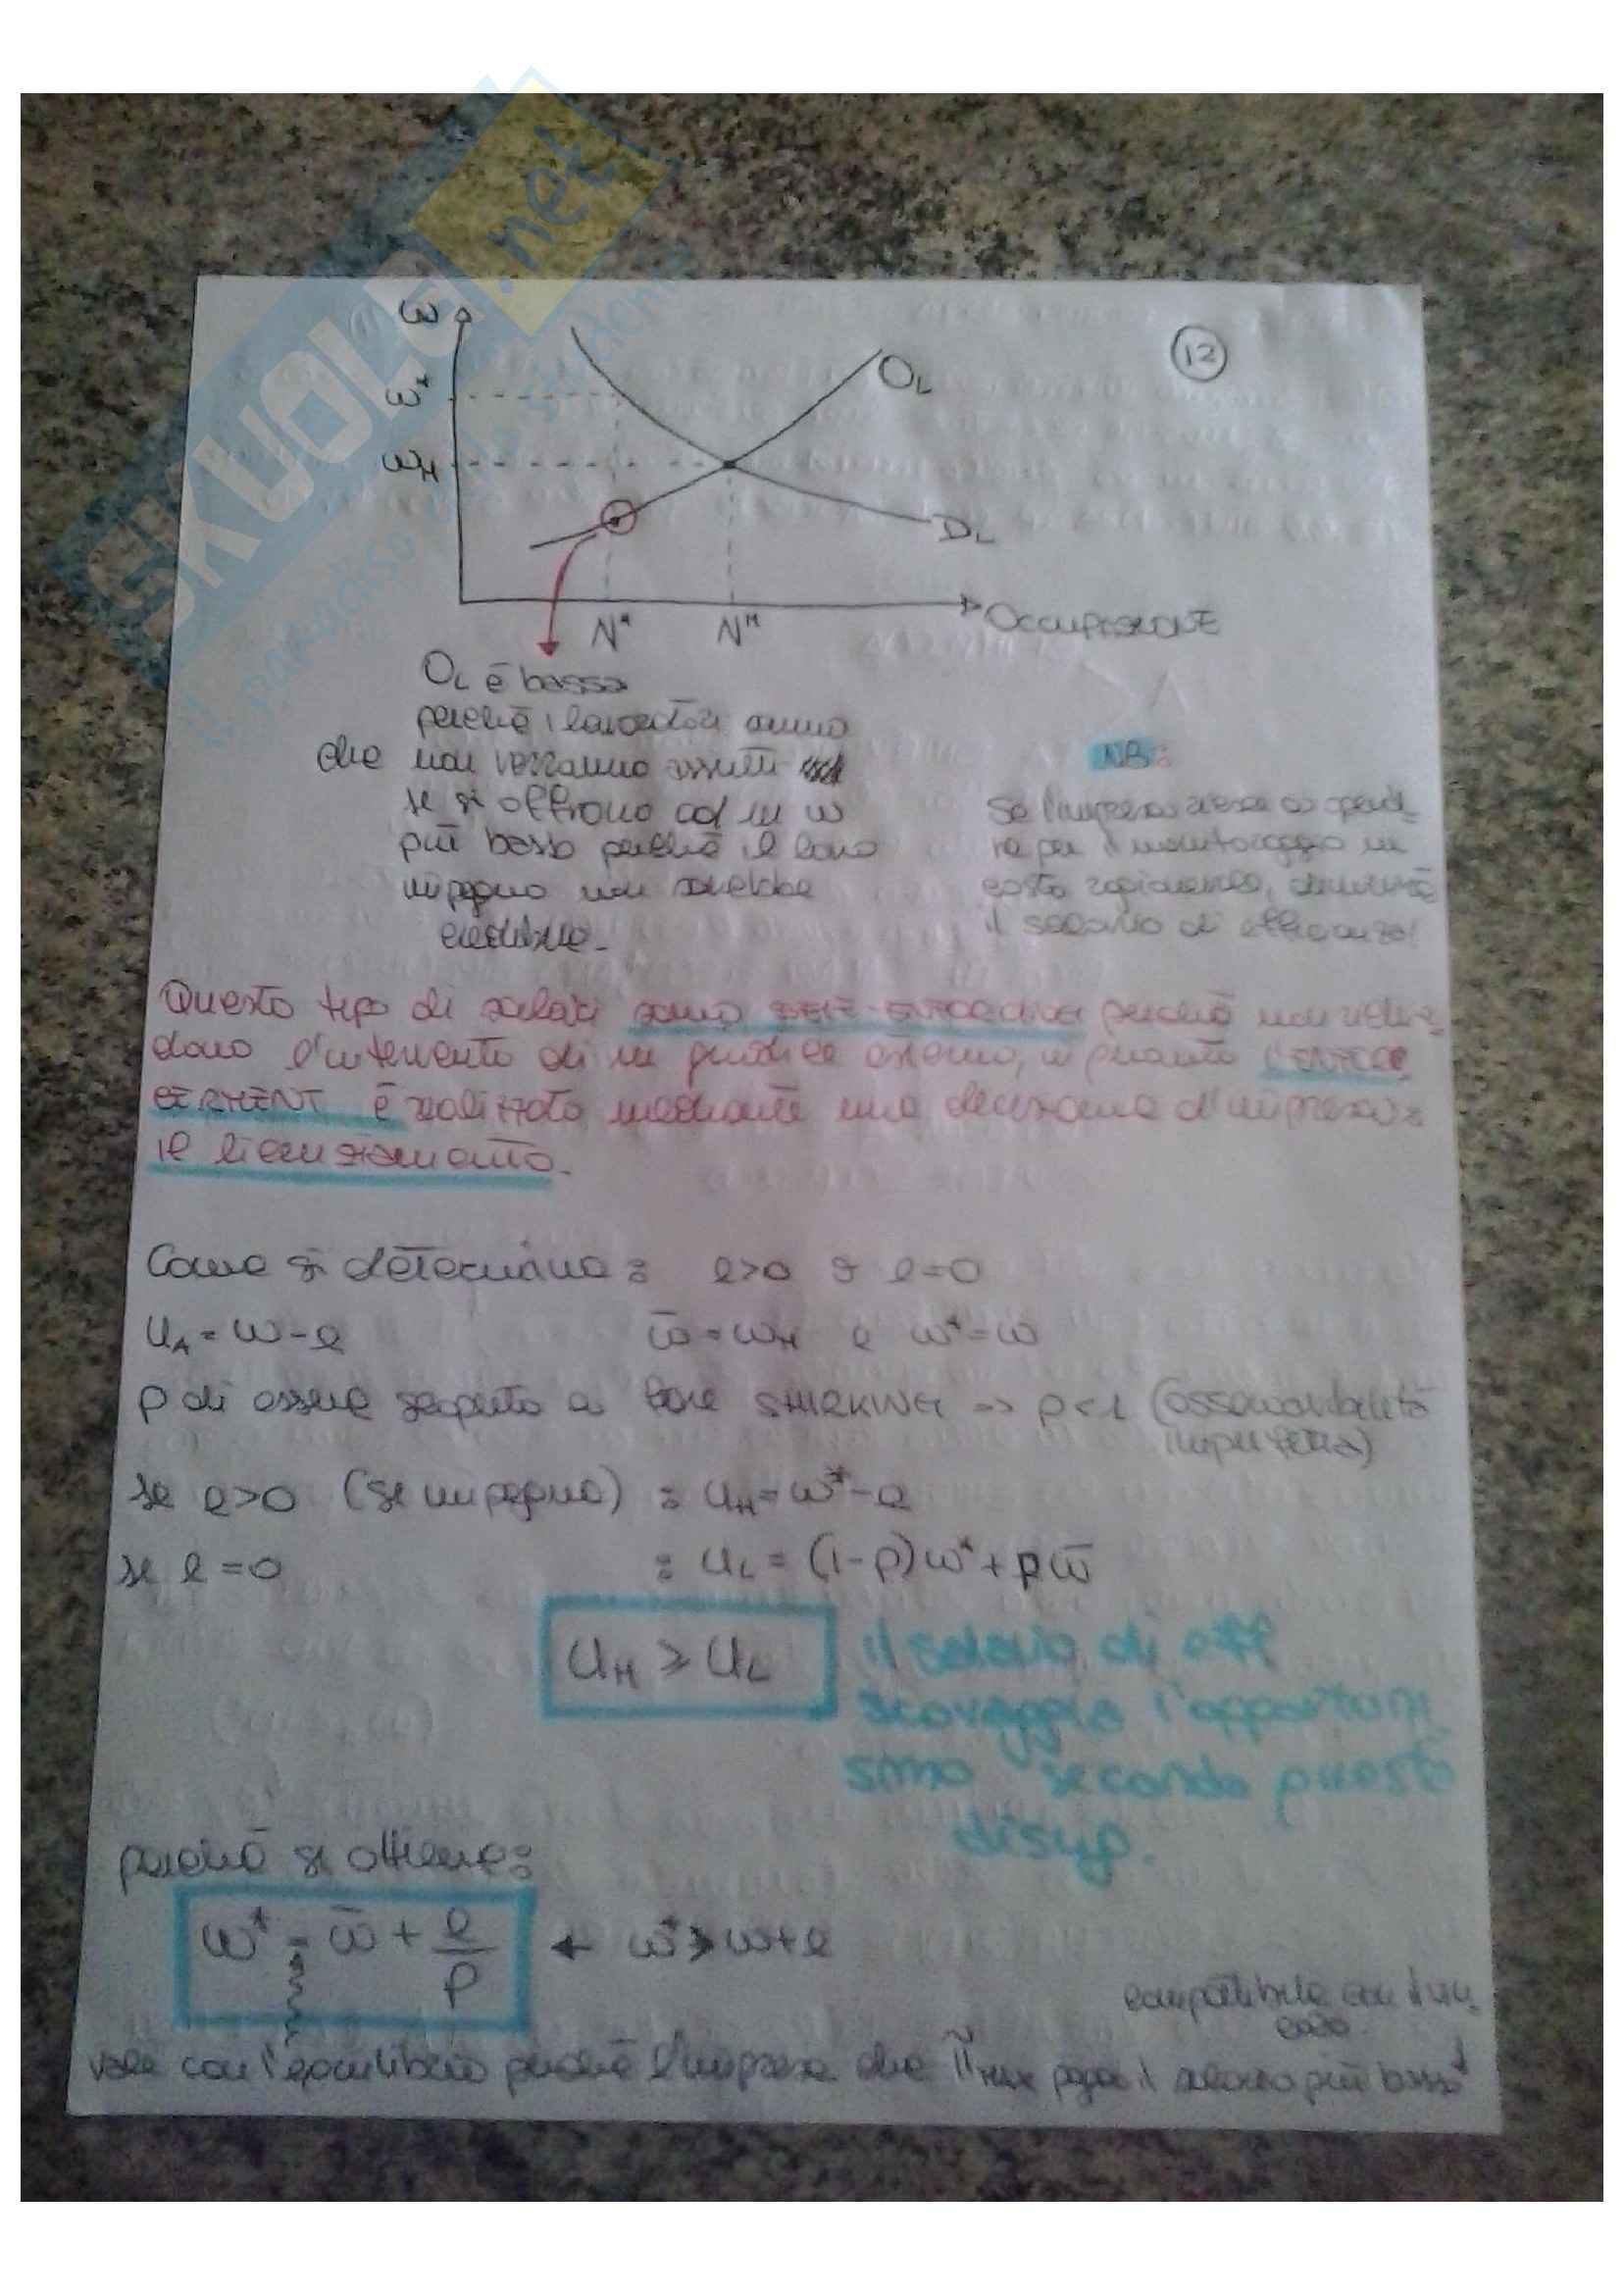 SKUOLA.net
il paradiso dello studente
12
w
w*
wM
OL
DL
N* NM
OCCUPAZIONE
OL è bassa
perché i lavoratori sanno
che non verranno assunti
se si offrono ad un w
più basso perché il loro
impegno non sarebbe
credibile.
NB:
Se l'impresa riesce a spende-
re per il monitoraggio un
costo ragionevole, diminuirà
il salario di efficienza!
Questo tipo di salari sono SELF-ENFORCING perché non richie-
dono l'intervento di un giudice esterno, in quanto l'ENFOR
CEMENT è realizzato mediante una decisione d'impresa:
il licenziamento.
Come si determina: e>0 e=0
UA = w-e w̄ = wM e w* = w
p di essere scoperto a fare SHIRKING => p<1 (osservabilità
imperfetta)
se e>0 (si impegna) : UH = w*-e
se e=0 : UL = (1-p)w* + pw̄
UH ≥ UL
il salario di eff
scoraggia l'opportuni
smo secondo questa
disug.
perché si ottiene:
w* = w̄ + e/p ← w* > w+e
compatibile con
vale con l'equilibrio perché l'impresa che Π max paga il salario più basso